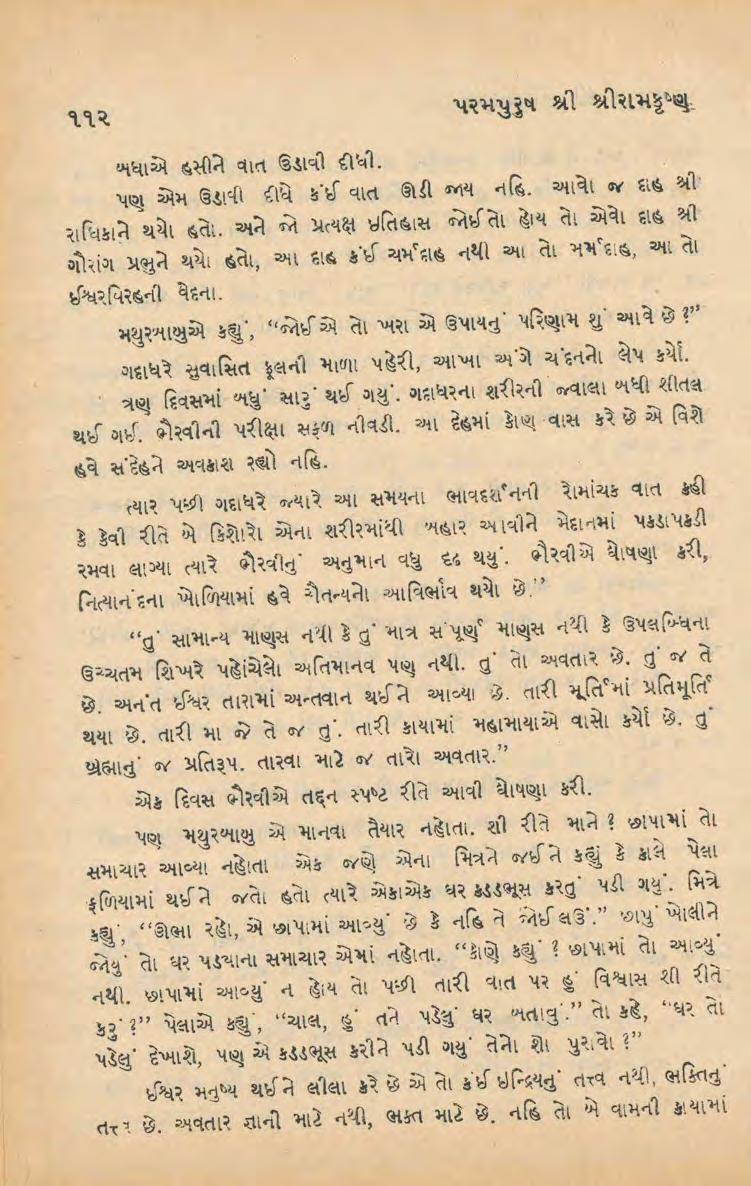 ૧૧૨
પરમપુરુષ શ્રી શ્રીરામકૃષ્ણ
બધાએ હસીને વાત ઉડાવી દીધી.
પણ એમ ઉડાવી દીધે કંઈ વાત ઊડી જાય નહિ. આવો જ દાહ શ્રી
રાધિકાને થયો હતો. અને જો પ્રત્યક્ષ ઇતિહાસ જોઈતો હોય તો એવો દાહ શ્રી
ગૌરાંગ પ્રભુને થયો હતો, આ દાહ કંઈ ચર્મદાહ નથી આ તો મર્મદાહ, આ તો
ઈશ્વરવિરહની વેદના.
મથુરબાબુએ કહ્યું, “જોઈએ તો ખરા એ ઉપાયનું પરિણામ શું આવે છે ?”
ગદાધરે સુવાસિત ફૂલની માળા પહેરી, આખા અંગે ચંદનનો લેપ કર્યો.
ત્રણ દિવસમાં બધું સારું થઈ ગયું. ગદાધરના શરીરની જ્વાલા બધી શીતલ
થઈ ગઈ. ભૈરવીની પરીક્ષા સફળ નીવડી. આ દેહમાં કોણ વાસ કરે છે એ વિશે
હવે સંદેહને અવકાશ રહ્યો નહિ.
ત્યાર પછી ગદાધરે જ્યારે આ સમયના ભાવદર્શનની રોમાંચક વાત કહી
કે કેવી રીતે બે કિશોરો એના શરીરમાંથી બહાર આવીને મેદાનમાં પકડાપકડી
રમવા લાગ્યા ત્યારે ભૈરવીનું અનુમાન વધુ દૃઢ થયું. ભૈરવીએ ઘોષણા કરી,
નિત્યાનંદના ખોળિયામાં હવે ચૈતન્યનો આવિર્ભાવ થયો છે.”
“તું સામાન્ય માણસ નથી કે તું માત્ર સંપૂર્ણ માણસ નથી કે ઉપલબ્ધિના
ઉચ્ચતમ શિખરે પહોંચેલો અતિમાનવ પણ નથી. તું તો અવતાર છે. તું જ તે
છે. અનંત ઈશ્વર તારામાં અન્તવાન થઈને આવ્યા છે. તારી મૂર્તિમાં પ્રતિમૂર્તિ
થયા છે. તારી મા જે તે જ તું. તારી કાયામાં મહામાયાએ વાસો કર્યો છે. તું
બ્રહ્માનું જ પ્રતિરૂપ. તારવા માટે જ તારો અવતાર.”
એક દિવસ ભૈરવીએ તદ્દન સ્પષ્ટ રીતે આવી ઘોષણા કરી.
પણ મથુરબાબુ એ માનવા તૈયાર નહોતા. શી રીતે માને ? છાપામાં તો
સમાચાર આવ્યા નહોતા એક જણે એના મિત્રને જઈને કહ્યું કે કાલે પેલા
ફળિયામાં થઈને જતો હતો ત્યારે એકાએક ઘર કડડભૂસ કરતું પડી ગયું. મિત્રે
કહ્યું, “ઊભા રહો, એ છાપામાં આવ્યું છે કે નહિ તે જોઈ લઉં.” છાપું ખોલીને
જોયું તો ઘર પડવાના સમાચાર એમાં નહોતા. “કોણે કહ્યું ? છાપામાં તો આવ્યું
નથી. છાપામાં આવ્યું ન હોય તો પછી તારી વાત પર હું વિશ્વાસ શી રીતે
કરું ?” પેલાએ કહ્યું, “ચાલ, હું તને પડેલું ઘર બતાવું.” તો કહે, “ઘર તો
પડેલું દેખાશે, પણ એ કડડભૂસ કરીને પડી ગયું તેનો શો પુરાવો ?”
ઈશ્વર મનુષ્ય થઈને લીલા કરે છે એ તો કંઈ ઇન્દ્રિયનું તત્ત્વ નથી, ભક્તિનું
તત્ત્વ છે. અવતાર જ્ઞાની માટે નથી, ભક્ત માટે છે. નહિ તો બે વામની કાયામાં